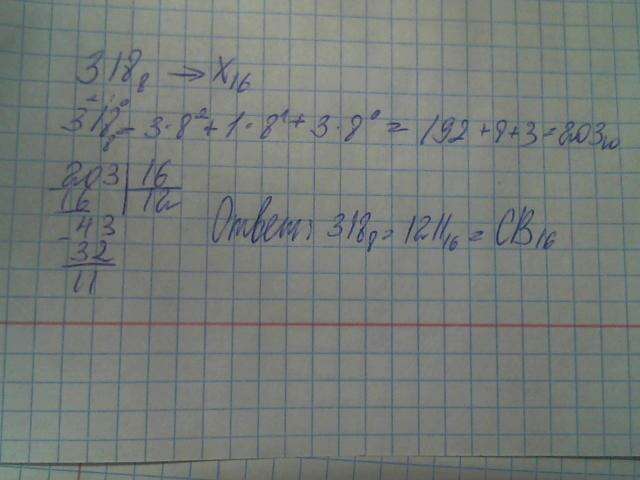 318₈ → X₁₆
318₈ = 3·8² + 1·8¹ + 3·8⁰ = 192 + 8 + 3 = 203₁₀
203 | 16
16 | 12
- 43
32
11
Ответ: 318₈ = 1211₁₆ = CB₁₆